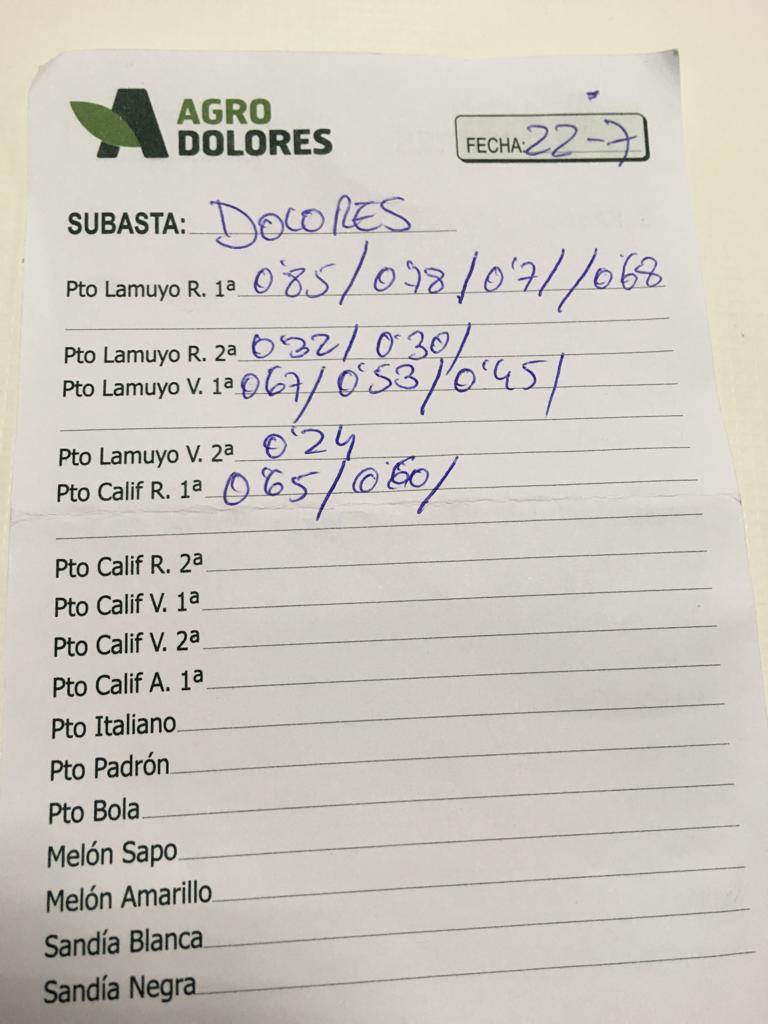 AGRO
DOLORES
FECHA: 22-7
SUBASTA: DOLORES
Pto Lamuyo R. 1ª 0'85/0'78/0'7//0'68
Pto Lamuyo R. 2ª 0'32/0'30/
Pto Lamuyo V. 1ª 067/0'53/0'45/
Pto Lamuyo V. 2ª 0'24
Pto Calif R. 1ª 0'65/0'60/
Pto Calif R. 2ª
Pto Calif V. 1ª
Pto Calif V. 2ª
Pto Calif A. 1ª
Pto Italiano
Pto Padrón
Pto Bola
Melón Sapo
Melón Amarillo
Sandía Blanca
Sandía Negra